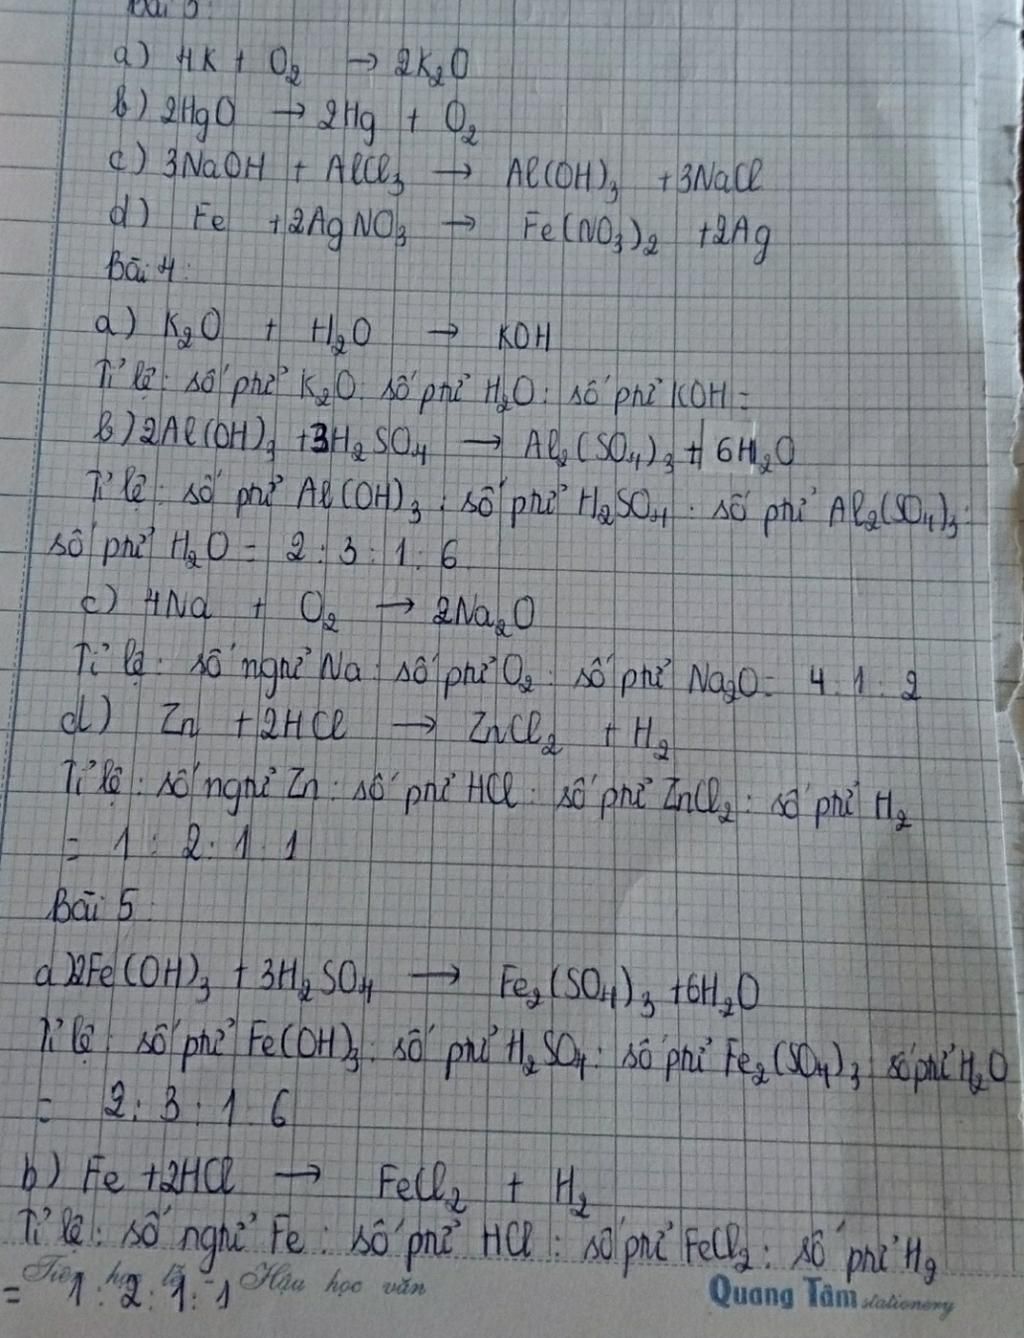 Bài 3:
a) 4K + O₂ → 2K₂O
b) 2HgO → 2Hg + O₂
c) 3NaOH + AlCl₃ → Al(OH)₃ + 3NaCl
d) Fe + 2AgNO₃ → Fe(NO₃)₂ + 2Ag
Bài 4:
a) K₂O + H₂O → KOH
Tỉ lệ: số phtử K₂O: số phtử H₂O: số phtử KOH =
b) 2Al(OH)₃ + 3H₂SO₄ → Al₂(SO₄)₃ + 6H₂O
Tỉ lệ: số phtử Al(OH)₃: số phtử H₂SO₄: số phtử Al₂(SO₄)₃:
số phtử H₂O = 2:3:1:6
c) 4Na + O₂ → 2Na₂O
Tỉ lệ: số nghtử Na: số phtử O₂: số phtử Na₂O = 4:1:2
d) Zn + 2HCl → ZnCl₂ + H₂
Tỉ lệ: số nghtử Zn: số phtử HCl: số phtử ZnCl₂: số phtử H₂
= 1:2:1:1
Bài 5:
a) 2Fe(OH)₃ + 3H₂SO₄ → Fe₂(SO₄)₃ + 6H₂O
Tỉ lệ: số phtử Fe(OH)₃: số phtử H₂SO₄: số phtử Fe₂(SO₄)₃: số phtử H₂O
= 2:3:1:6
b) Fe + 2HCl → FeCl₂ + H₂
Tỉ lệ: số nghtử Fe: số phtử HCl: số phtử FeCl₂: số phtử H₂
= 1:2:1:1
Tiên học lễ - Hậu học văn
Quang Tâm stationery